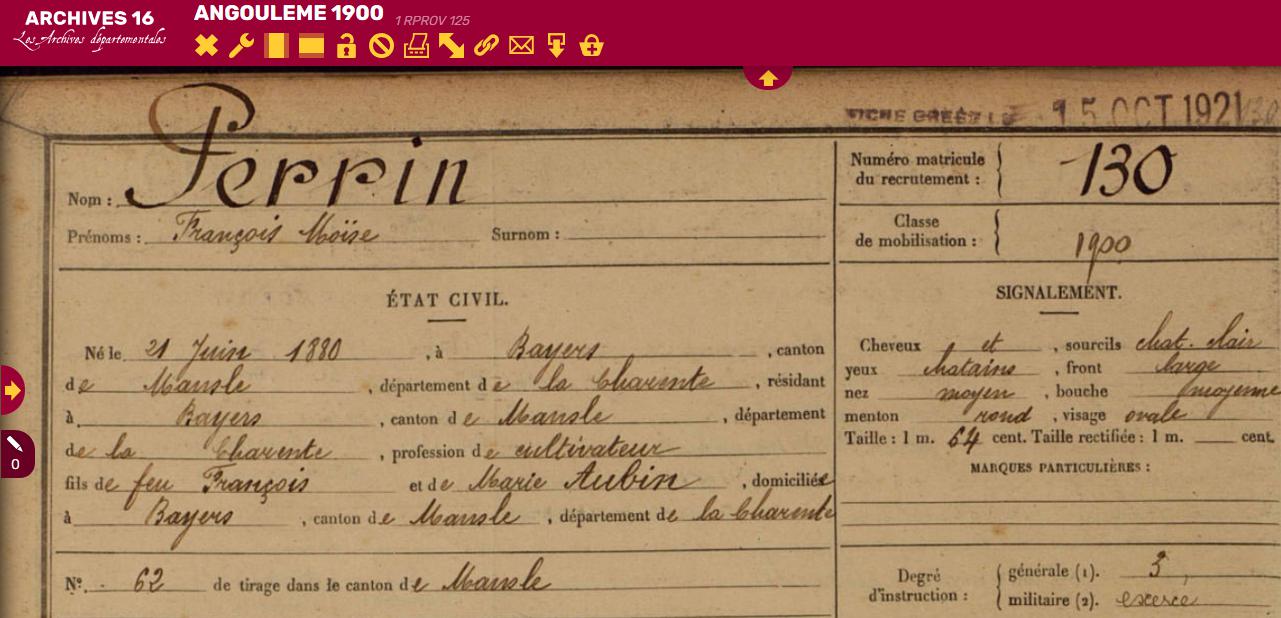 ARCHIVES 16
Les Archives départementales
ANGOULEME 1900 1 RPROV 125
15 OCT 1921
Nom : Perrin
Prénoms : François Moïse Surnom :
Numéro matricule du recrutement : 130
Classe de mobilisation : 1900
ÉTAT CIVIL.
Né le 21 Juin 1880, à Bayers, canton
de Mansle, département de la Charente, résidant
à Bayers, canton de Mansle, département
de la Charente, profession de cultivateur
fils de feu François et de Marie Aubin, domiciliés
à Bayers, canton de Mansle, département de la Charente
N° 62 de tirage dans le canton de Mansle
SIGNALEMENT.
Cheveux et, sourcils chat. clair
yeux chatains, front large
nez moyen, bouche moyenne
menton rond, visage ovale
Taille : 1 m. 64 cent. Taille rectifiée : 1 m. cent.
MARQUES PARTICULIÈRES :
Degré d'instruction : générale (1). 3
militaire (2). exercé
0